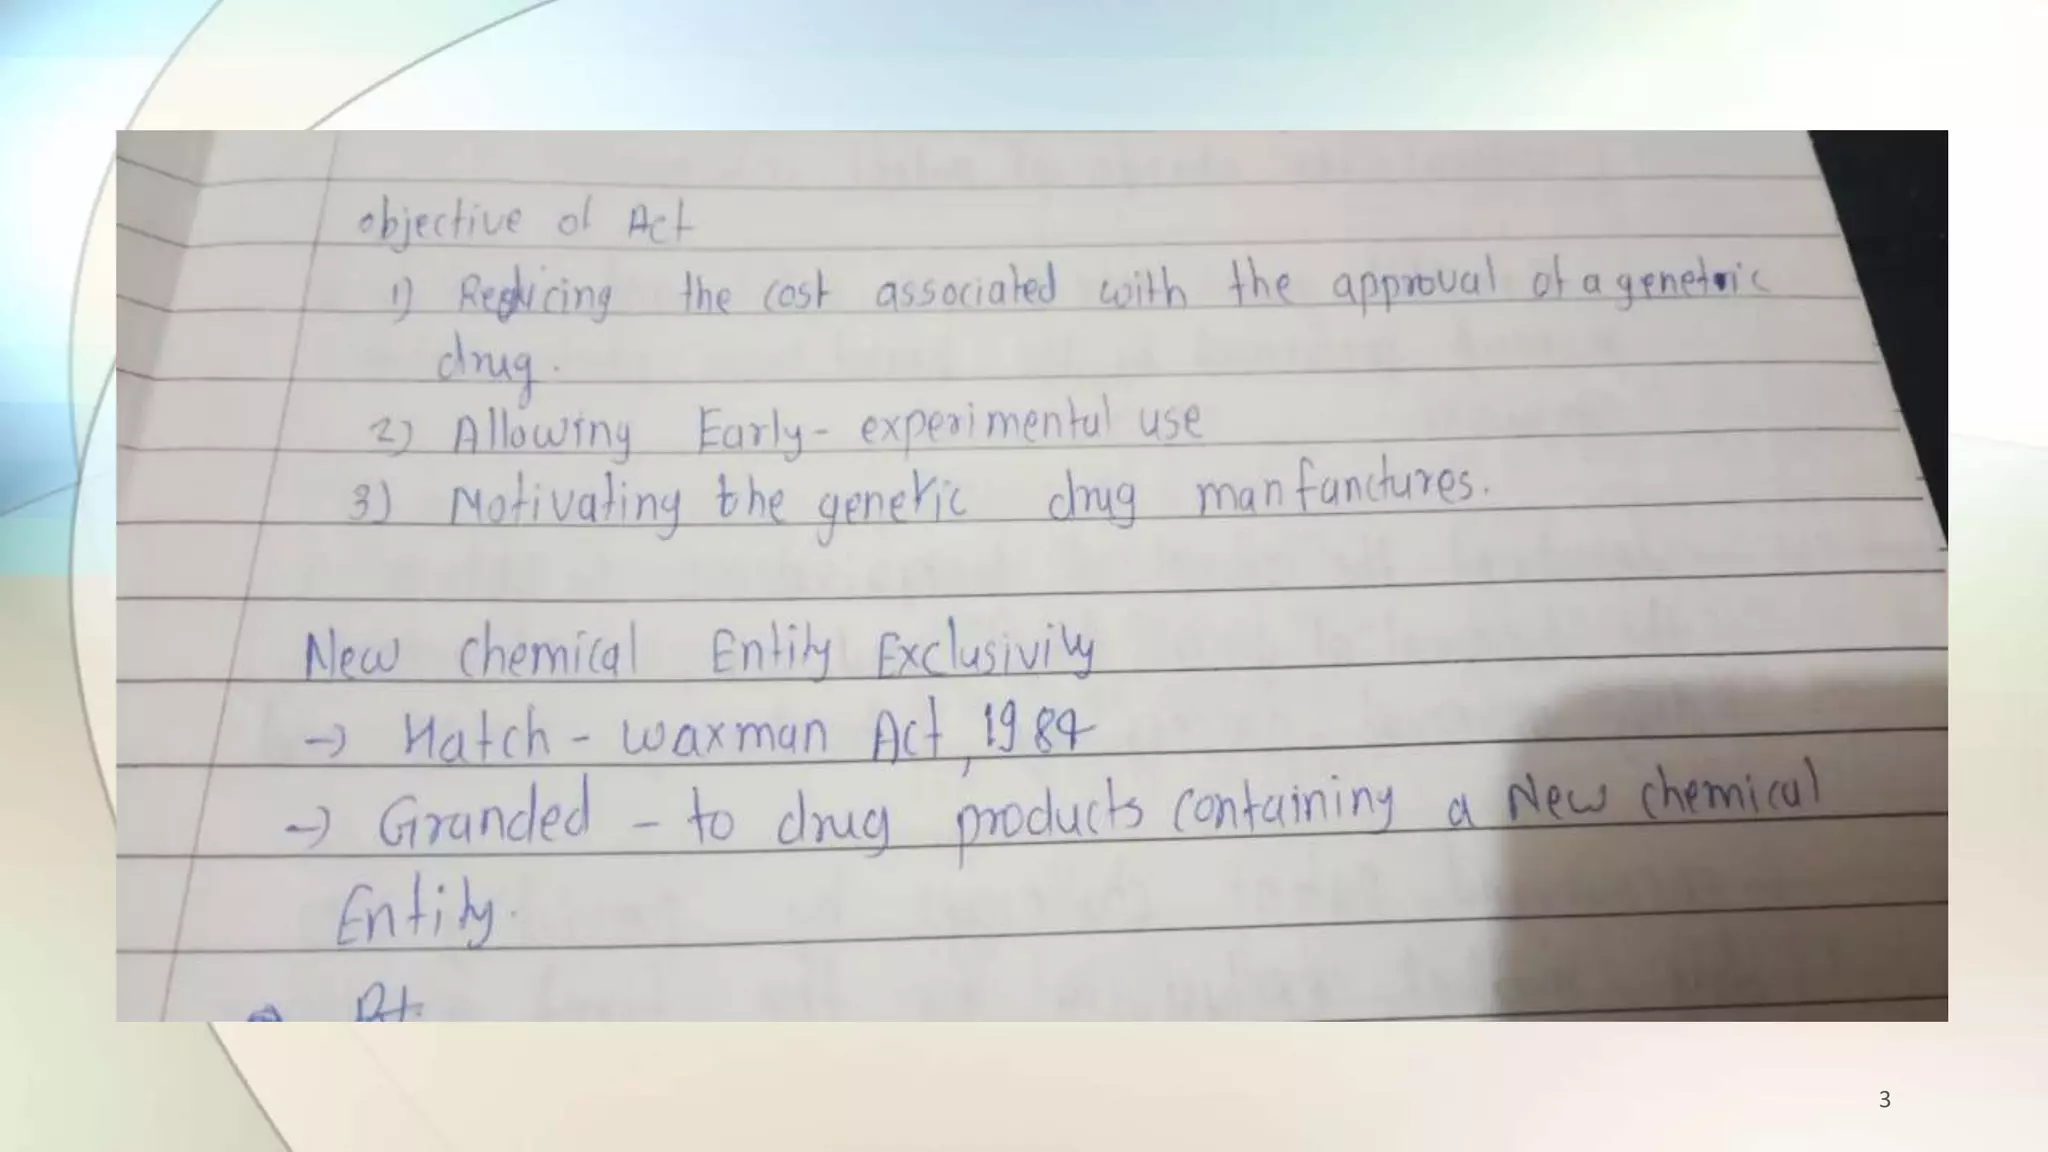 objective of Act
1) Reducing the cost associated with the approval of a genetric
drug.
2) Allowing Early- experimental use
3) Motivating the generic drug manfanctures.
New chemical Entity Exclusivity
→ Hatch - waxman Act, 1984
→ Granded - to drug products containing a New chemical
Entity.
3